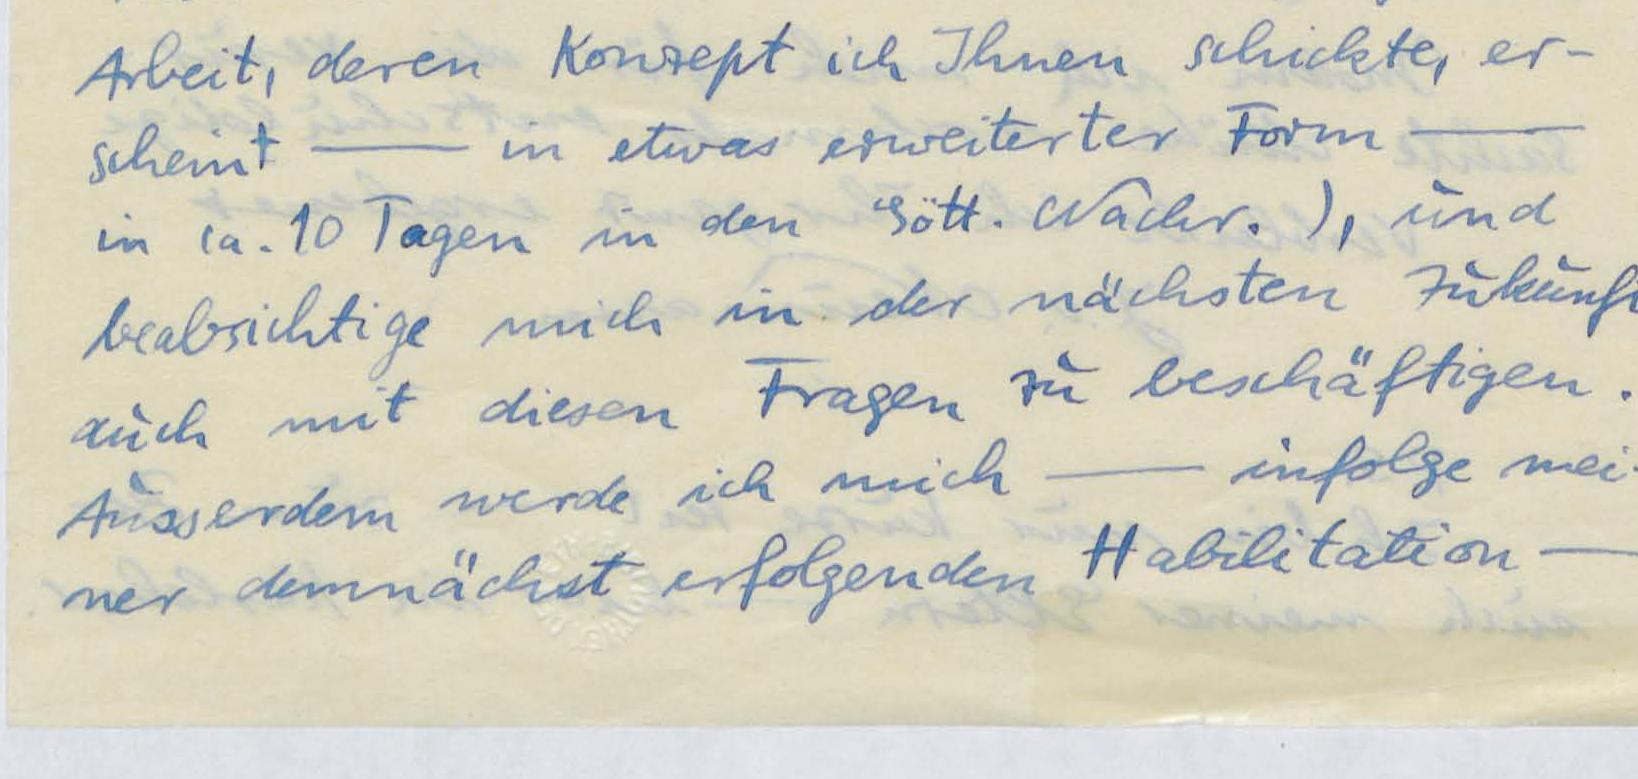 Arbeit, deren Konzept ich Ihnen schickte, er-
scheint — in etwas erweiterter Form —
in ca. 10 Tagen in den Gött. Nachr. ), und
beabsichtige mich in der nächsten Zukunft
auch mit diesen Fragen zu beschäftigen.
Ausserdem werde ich mich — infolge mei-
ner demnächst erfolgenden Habilitation —